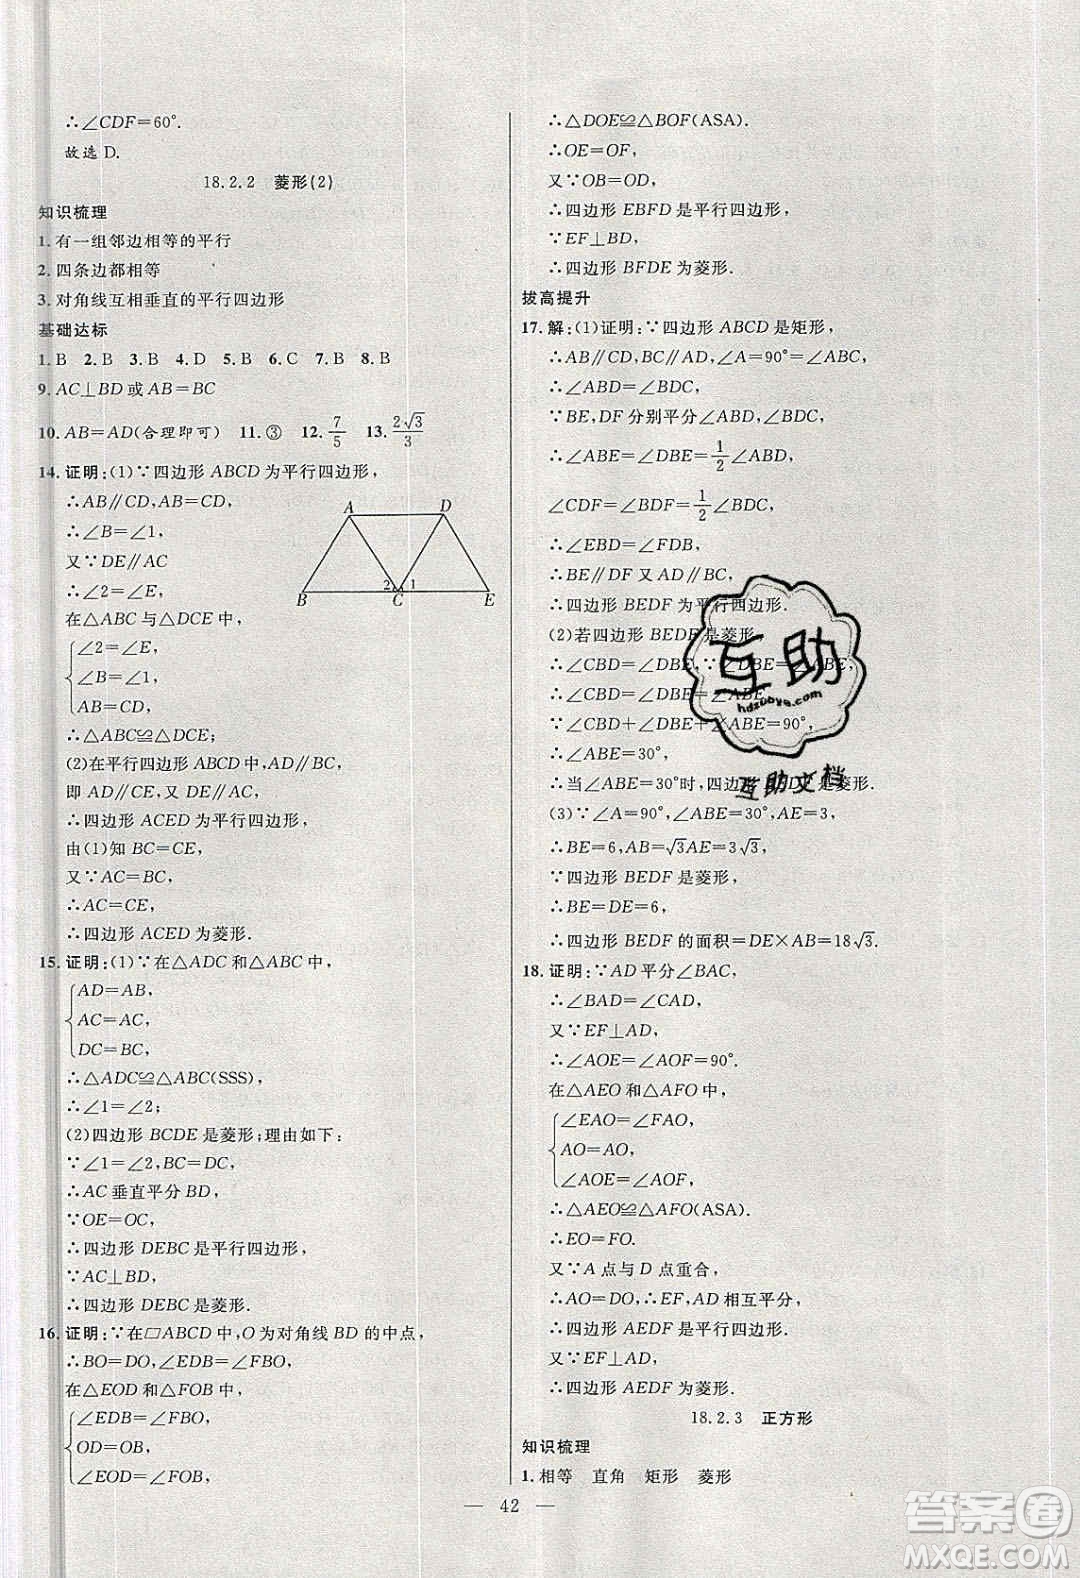 ∴∠CDF=60°.
故选 D.
18.2.2 菱形(2)
知识梳理
1. 有一组邻边相等的平行
2. 四条边都相等
3. 对角线互相垂直的平行四边形
基础达标
1. B 2. B 3. B 4. D 5. B 6. C 7. B 8. B
9. AC⊥BD 或 AB=BC
10. AB=AD(合理即可) 11. ③ 12. 7/5 13. 2√3/3
14. 证明:(1)∵四边形 ABCD 为平行四边形,
∴AB∥CD,AB=CD,
∴∠B=∠1,
又∵DE∥AC
∴∠2=∠E,
在△ABC 与△DCE 中,
∠2=∠E,
∠B=∠1,
AB=CD,
∴△ABC≌△DCE;
(2)在平行四边形 ABCD 中,AD∥BC,
即 AD∥CE,又 AC∥DE,
∴四边形 ACED 为平行四边形,
由(1)知 BC=CE,
又∵AC=BC,
∴AC=CE,
∴四边形 ACED 为菱形.
A D
B 2 C 1 E
15. 证明:(1)∵在△ADC 和△ABC 中,
AD=AB,
AC=AC,
DC=BC,
∴△ADC≌△ABC(SSS),
∴∠1=∠2;
(2)四边形 BCDE 是菱形;理由如下:
∵∠1=∠2,BC=DC,
∴AC 垂直平分 BD,
∵OE=OC,
∴四边形 DEBC 是平行四边形,
∵AC⊥BD,
∴四边形 DEBC 是菱形.
16. 证明:∵在▱ABCD 中,O 为对角线 BD 的中点,
∴BO=DO,∠EDB=∠FBO,
在△EOD 和△FOB 中,
∠EDB=∠FBO,
OD=OB,
∠EOD=∠FOB,
∴△DOE≌△BOF(ASA).
∴OE=OF,
又∵OB=OD,
∴四边形 EBFD 是平行四边形,
∵EF⊥BD,
∴四边形 BFDE 为菱形.
拔高提升
17. 解:(1)证明:∵四边形 ABCD 是矩形,
∴AB∥CD,BC∥AD,∠A=90°=∠ABC,
∴∠ABD=∠BDC,
∵BE,DF 分别平分∠ABD,∠BDC,
∴∠ABE=∠DBE=1/2∠ABD,
∠CDF=∠BDF=1/2∠BDC,
∴∠EBD=∠FDB,
∴BE∥DF 又 AD∥BC,
∴四边形 BEDF 为平行四边形.
(2)若四边形 BEDF 是菱形,
∴∠CBD=∠DBE,∵∠DBE=∠ABE,
∴∠CBD=∠DBE=∠ABE,
∵∠CBD+∠DBE+∠ABE=90°,
∴∠ABE=30°,
∴当∠ABE=30°时,四边 DF 是菱形.
(3)∵∠A=90°,∠ABE=30°,AE=3,
∴BE=6,AB=√3AE=3√3,
∵四边形 BEDF 是菱形,
∴BE=DE=6,
∴四边形 BEDF 的面积=DE×AB=18√3.
18. 证明:∵AD 平分∠BAC,
∴∠BAD=∠CAD,
又∵EF⊥AD,
∴∠AOE=∠AOF=90°.
在△AEO 和△AFO 中,
∠EAO=∠FAO,
AO=AO,
∠AOE=∠AOF,
∴△AEO≌△AFO(ASA).
∴EO=FO.
又∵A 点与 D 点重合,
∴AO=DO,∴EF,AD 相互平分,
∴四边形 AEDF 是平行四边形.
又∵EF⊥AD,
∴四边形 AEDF 为菱形.
18.2.3 正方形
知识梳理
1. 相等 直角 矩形 菱形
— 42 —
互助
hdzuoye.com
互助文档
答案圈
MXQE.COM